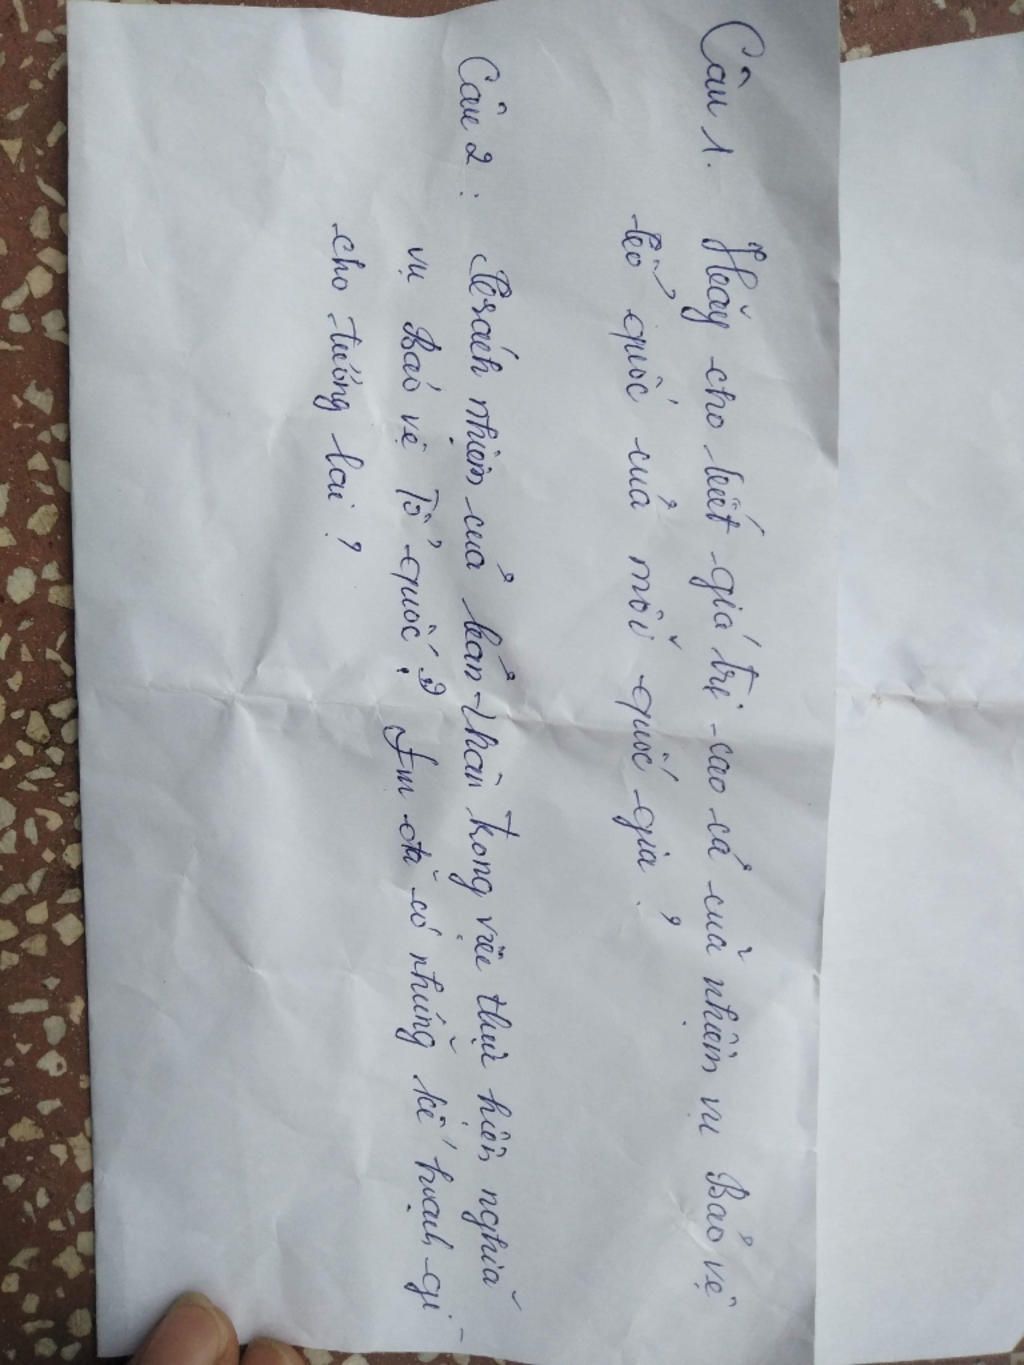 Câu 1. Hãy cho biết giá trị cao cả của nhiệm vụ Bảo vệ
tổ quốc của mỗi quốc gia?
Câu 2: Trách nhiệm của bản thân trong việc thực hiện nghĩa
vụ Bảo vệ Tổ quốc? Em đã có những kế hoạch gì
cho tương lai?